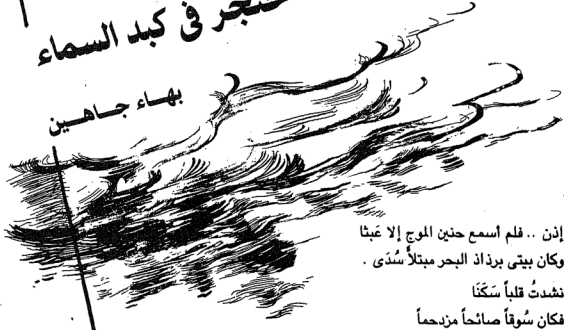 خنجر فى كبد السماء
بهاء جاهين
إذن .. فلم أسمع حنين الموج إلا عَبثا
وكان بيتى برذاذ البحر مبتلاً سُدَى .
نشدتُ قلباً سَكَنَا
فكان سُوقاً صائحاً مزدحماً